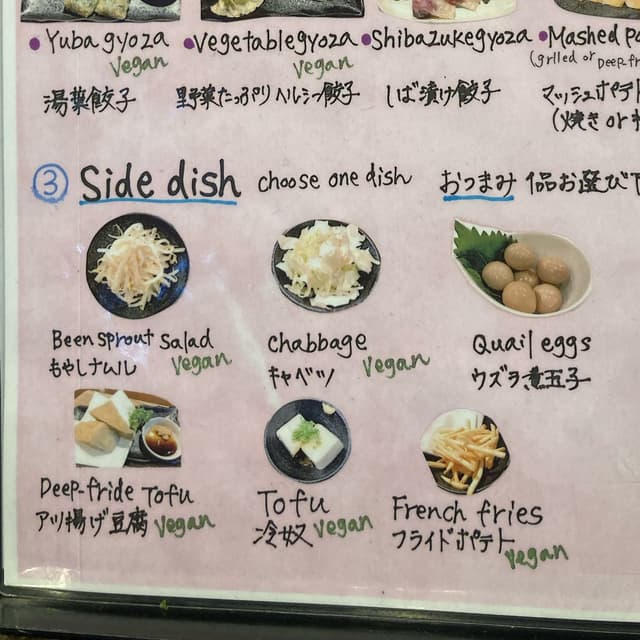 • Yuba gyoza •Vegetable gyoza •Shibazuke gyoza •Mashed
Vegan Vegan (grilled or
湯葉餃子 野菜たっぷりヘルシー餃子 しば漬け餃子 マッシュポテト
(焼き or
③ Side dish choose one dish おつまみ 1品お選び下
Been sprout salad chabbage Quail eggs
もやしナムル Vegan キャベツ Vegan ウズラ煮玉子
Deep-fride Tofu Tofu French fries
アツ揚げ豆腐 Vegan 冷奴 Vegan フライドポテト
Vegan